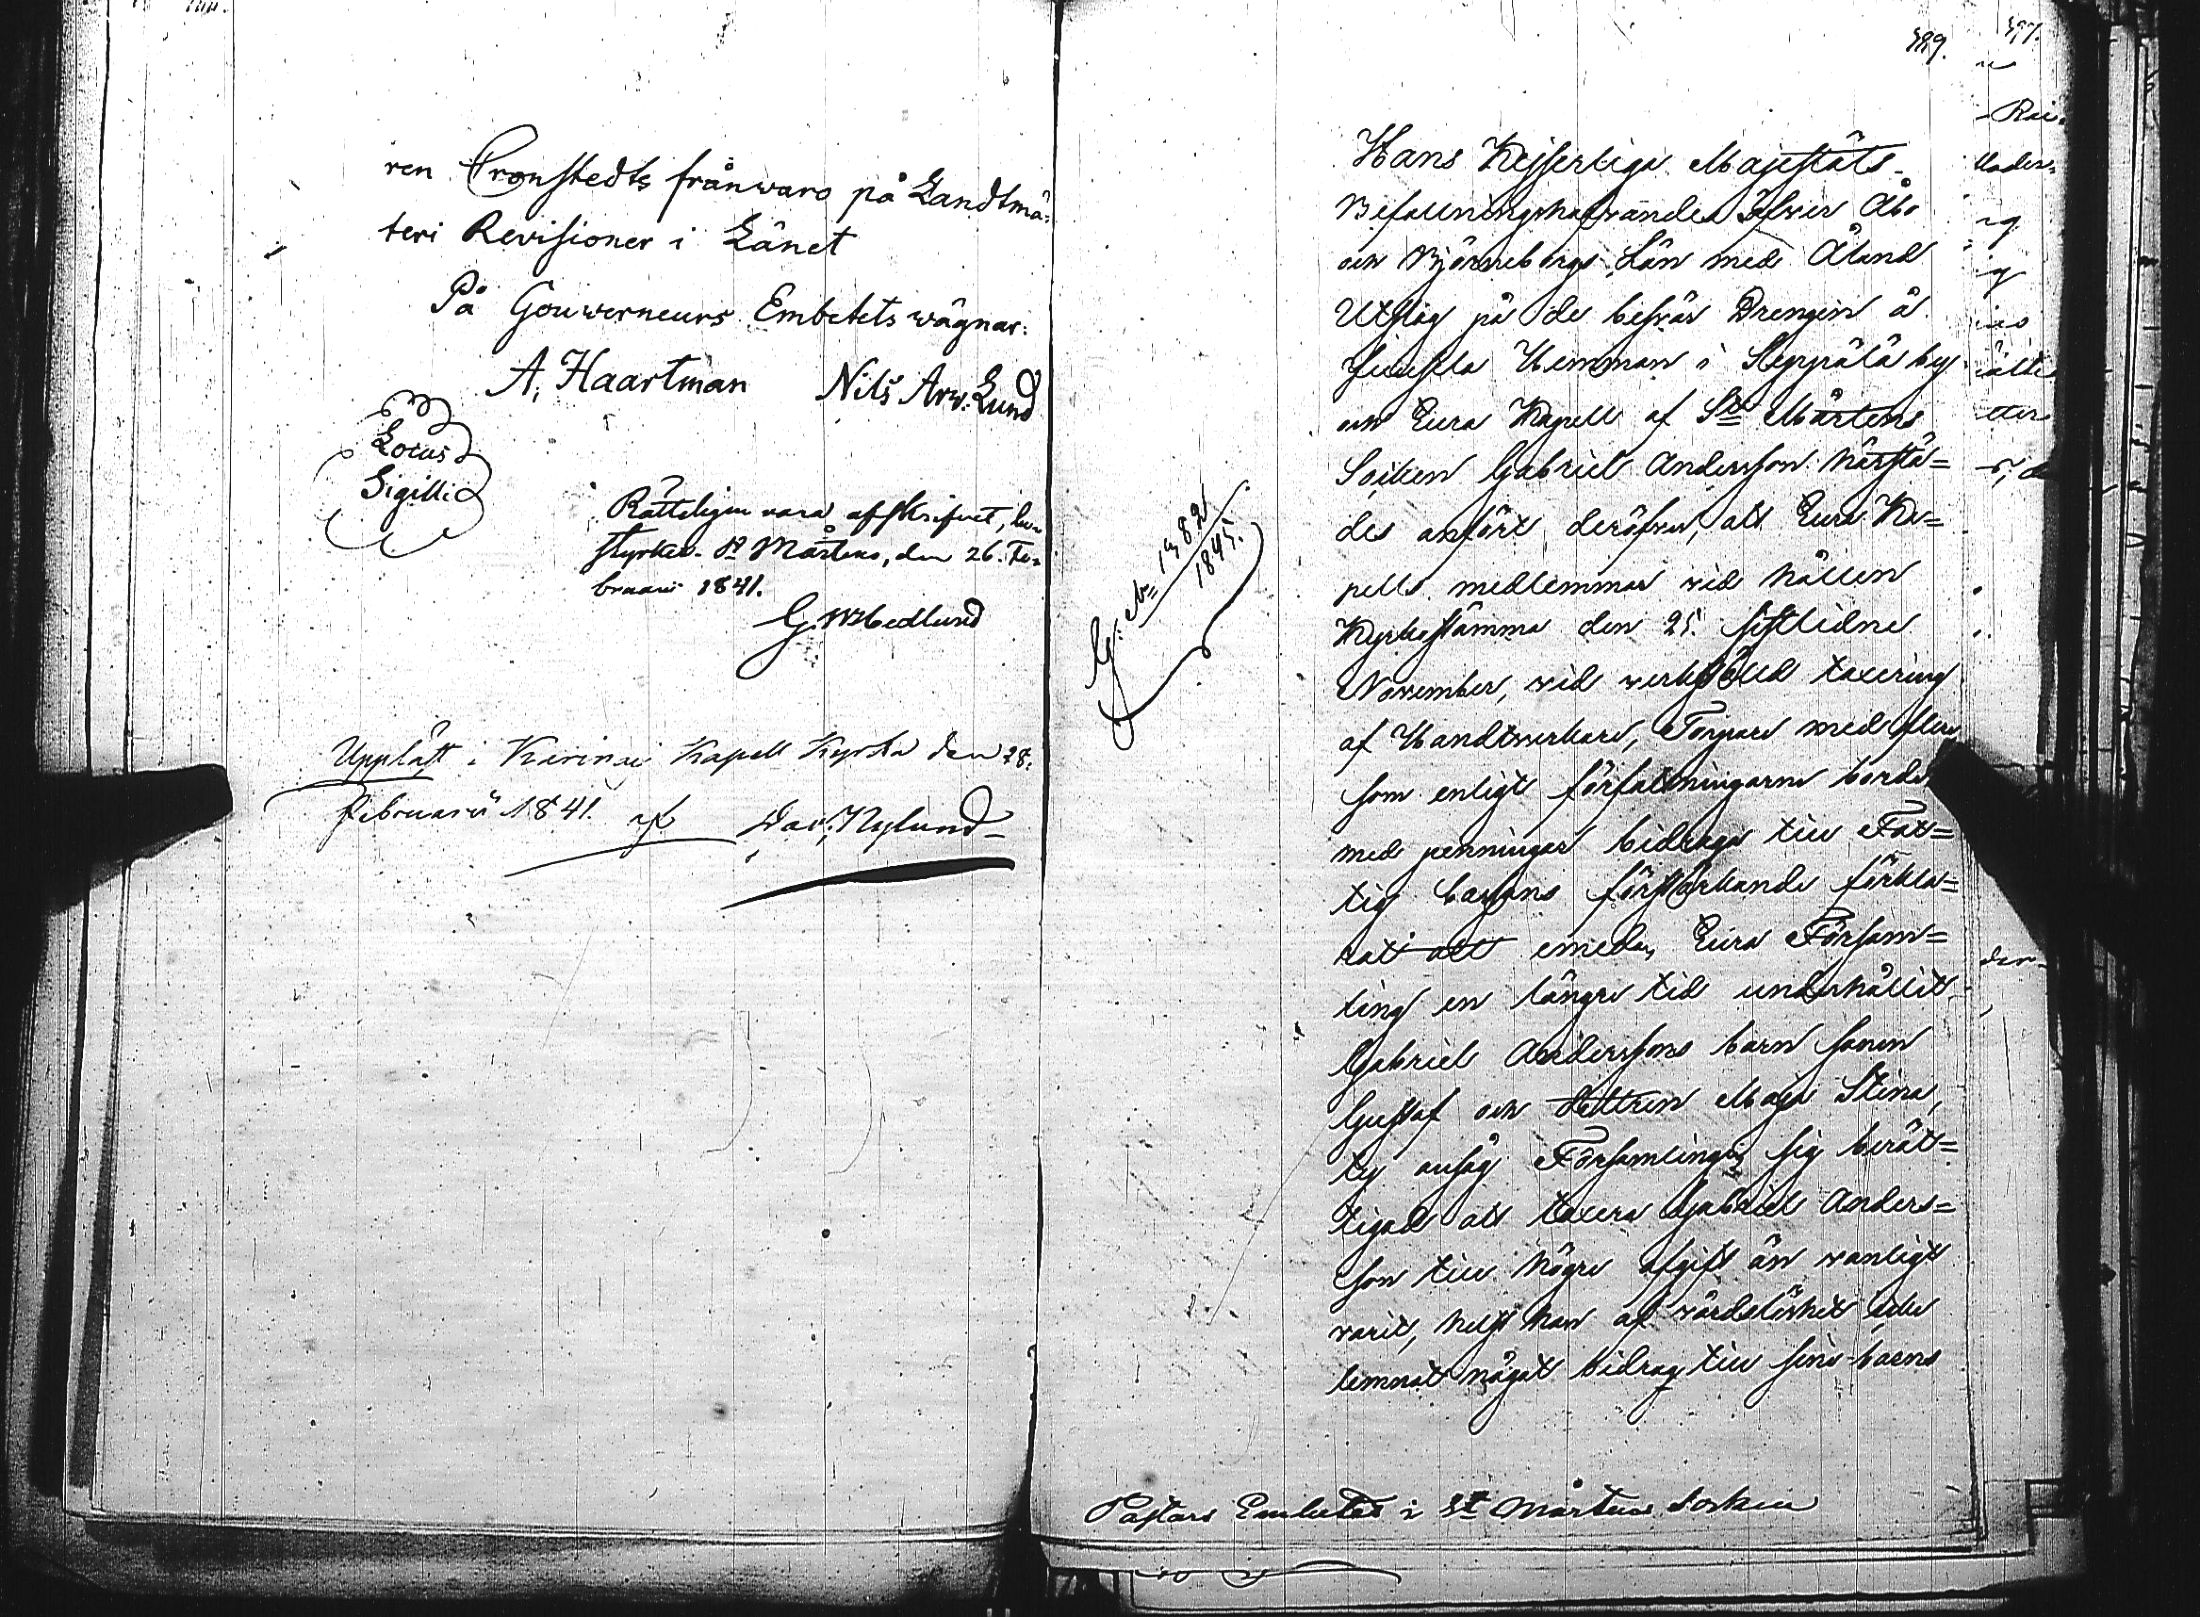 ren Cronstedts frånwaro på Landtmä=
teri Revisioner i Länet
På Gouverneurs Embetets wägnar:
A. Haartman Nils Arw. Lund
Locus
Sigilli
Rätteligen vara afskrifvet, be=
styrker. St Mårtens, den 26. Fe=
bruarii 1841.
G. W Hedlund
Uppläst i Karinai Kapell Kyrka den 28.
Februarii 1841. af Dav. Nylund
489.
G. No 1982
1845.
Hans Kejserliga Majestäts
Befallningshafvandes öfwer Åbo
och Björneborgs Län med Åland
Utslag på de besvär Drengen å
Hemman i Seppälä by
och Eura Kapell af St Mårtens
Socken Gabriel Andersson härstä=
des anfört deröfver, att Eura Ka=
pells medlemmar vid hållen
Kyrkostämma den 25. sistlidne
November, vid verkställd taxering
af Handtverkare, Torpare med flere,
som enligt författningarne borde
med penningar bidraga till Fat=
tig cassans förstärkande förkla=
rat att emedan Eura Försam=
ling en längre tid underhållit
Gabriel Anderssons barn sonen
Gustaf och dottren Maja Stina,
ty ansåg Församlingen sig berät=
tigad att taxera Gabriel Anders=
son till högre afgift än vanligt
varit, helst han af vårdslöshet icke
lemnat något bidrag till sine barns
Pastors Embetet i St Mårtens Socken